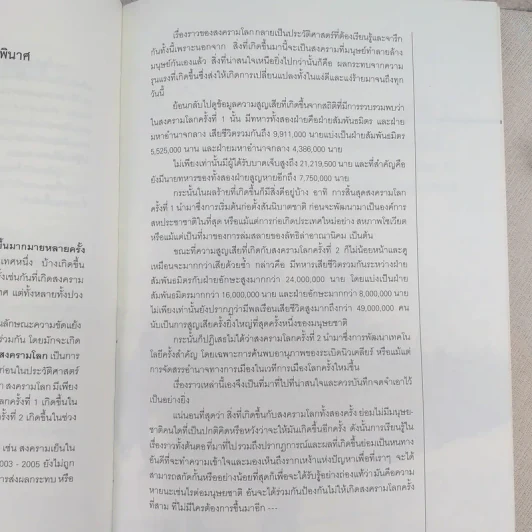 พินาศ
ขึ้นมากมายหลายครั้ง
เทศหนึ่ง บ้างเกิดขึ้น
ซึ่งเช่นกันที่เกิดสงคราม
าศ แต่ทั้งหลายทั้งปวง
นลักษณะความขัดแย้ง
ร่วมกัน โดยมักจะเกิด
สงครามโลก เป็นการ
ก่อนในประวัติศาสตร์
า สงครามโลก มีเพียง
ที่ 1 เกิดขึ้นในช่วง
ที่ 2 เกิดขึ้นในช่วง
เช่น สงครามเย็นใน
003 - 2005 ยังไม่ถูก
การส่งผลกระทบ หรือ
เรื่องราวของสงครามโลก กลายเป็นประวัติศาสตร์ที่ต้องเรียนรู้และจารึก
กันทั้งนี้เพราะนอกจาก สิ่งที่เกิดขึ้นมานี้จะเป็นสงครามที่มนุษย์ทำลายล้าง
มนุษย์กันเองแล้ว สิ่งที่น่าสนใจเหนือยิ่งไปกว่านั้นก็คือ ผลกระทบจากความ
รุนแรงที่เกิดขึ้นซึ่งส่งให้เกิดการเปลี่ยนแปลงทั้งในแง่ดีและแง่ร้ายมาจนถึงทุก
วันนี้
ย้อนกลับไปดูข้อมูลความสูญเสียที่เกิดขึ้นจากสถิติที่มีการรวบรวมพบว่า
ในสงครามโลกครั้งที่ 1 นั้น มีทหารทั้งสองฝ่ายคือฝ่ายสัมพันธมิตร และฝ่าย
มหาอำนาจกลาง เสียชีวิตรวมกันถึง 9,911,000 นายแบ่งเป็นฝ่ายสัมพันธมิตร
5,525,000 นาน และฝ่ายมหาอำนาจกลาง 4,386,000 นาย
ไม่เพียงเท่านั้นมีผู้ได้รับบาดเจ็บสูงถึง 21,219,500 นาย และที่สำคัญคือ
ยังมีนายทหารของทั้งสองฝ่ายสูญหายอีกถึง 7,750,000 นาย
กระนั้นในผลร้ายที่เกิดขึ้นก็มีสิ่งดีอยู่บ้าง อาทิ การสิ้นสุดสงครามโลก
ครั้งที่ 1 นำมาซึ่งการเริ่มต้นก่อตั้งสันนิบาตชาติ ก่อนจะพัฒนามาเป็นองค์การ
สหประชาชาติในที่สุด หรือแม้แต่การก่อเกิดประเทศใหม่อย่าง สหภาพโซเวียต
หรือแม้แต่เป็นที่มาของการล่มสลายของลัทธิล่าอาณานิคม เป็นต้น
ขณะที่ความสูญเสียที่เกิดกับสงครามโลกครั้งที่ 2 ก็ไม่น้อยหน้าและดู
เหมือนจะมากกว่าเสียด้วยซ้ำ กล่าวคือ มีทหารเสียชีวิตรวมกันระหว่างฝ่าย
สัมพันธมิตรกับฝ่ายอักษะสูงมากกว่า 24,000,000 นาย โดยแบ่งเป็นฝ่าย
สัมพันธมิตรมากกว่า 16,000,000 นายและฝ่ายอักษะมากกว่า 8,000,000 นาย
ไม่เพียงเท่านั้นยังปรากฏว่ามีพลเรือนเสียชีวิตสูงมากถึง 49,000,000 คน
นับเป็นการสูญเสียครั้งยิ่งใหญ่ที่สุดครั้งหนึ่งของมนุษยชาติ
กระนั้นก็ปฏิเสธไม่ได้ว่าสงครามโลกครั้งที่ 2 นำมาซึ่งการพัฒนาเทคโน
โลยีครั้งสำคัญ โดยเฉพาะการค้นพบอานุภาพของระเบิดนิวเคลียร์ หรือแม้แต่
การจัดสรรอำนาจทางการเมืองในเวทีการเมืองโลกครั้งใหม่ขึ้น
เรื่องราวเหล่านี้เองจึงเป็นที่มาที่ไปที่น่าสนใจและควรบันทึกจดจำเอาไว้
เป็นอย่างยิ่ง
แน่นอนที่สุดว่า สิ่งที่เกิดขึ้นกับสงครามโลกทั้งสองครั้ง ย่อมไม่มีมนุษย-
ชาติคนใดที่เป็นปกติคิดหรือหวังว่าจะให้มันเกิดขึ้นอีกครั้ง ดังนั้นการเรียนรู้ใน
เรื่องราวทั้งต้นตอที่มาที่ไปรวมถึงปรากฏการณ์และผลที่เกิดขึ้นย่อมเป็นหนทาง
อันดีที่จะทำความเข้าใจและมองเห็นถึงรากเหง้าแห่งปัญหาเพื่อที่เราๆ จะได้
สามารถสกัดกั้นหรืออย่างน้อยที่สุดก็เพื่อจะได้รับรู้อย่างถ่องแท้ว่ามันคือความ
หายนะเช่นไรต่อมนุษยชาติ อันจะได้ร่วมกันป้องกันไม่ให้เกิดสงครามโลกครั้ง
ที่สาม ที่ไม่มีใครต้องการขึ้นมาอีก ---